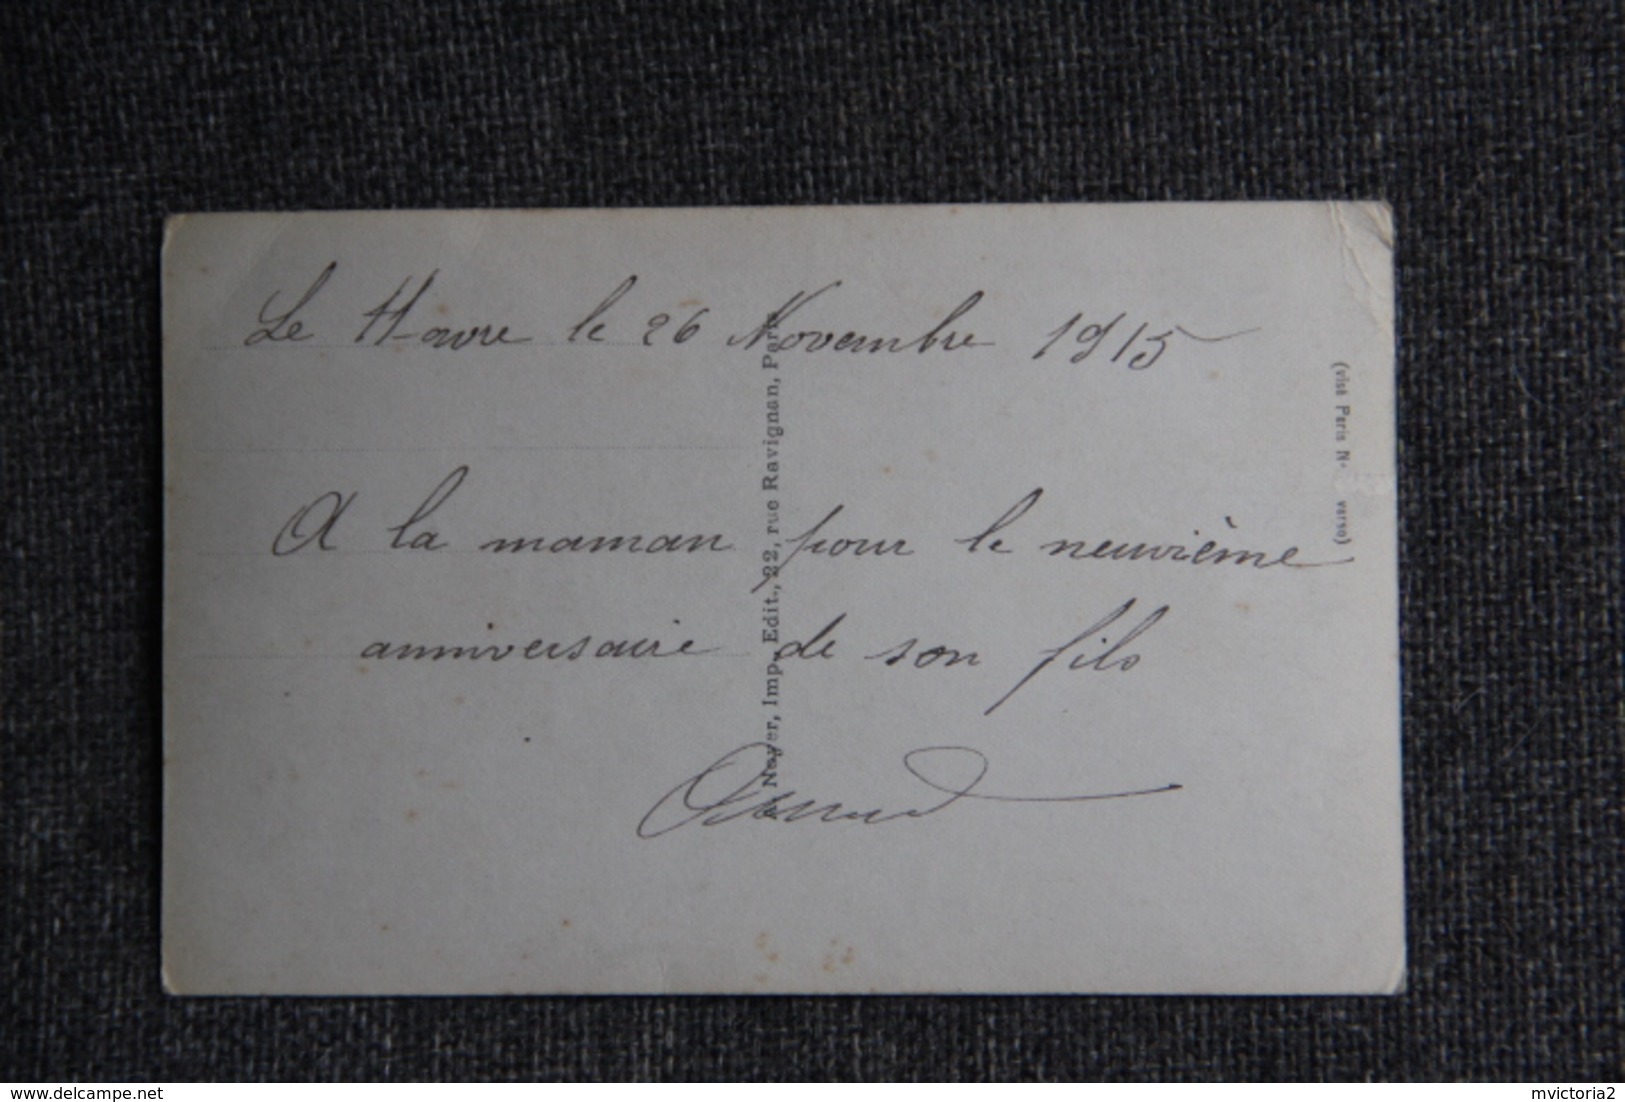 Le Havre le 26 Novembre 1915
A la maman pour le neuvième
anniversaire de son fils
Noyer, Imp. Edit., 22, rue Ravignan, Paris
(visé Paris N° verso)
delcampe.net
mvictoria2